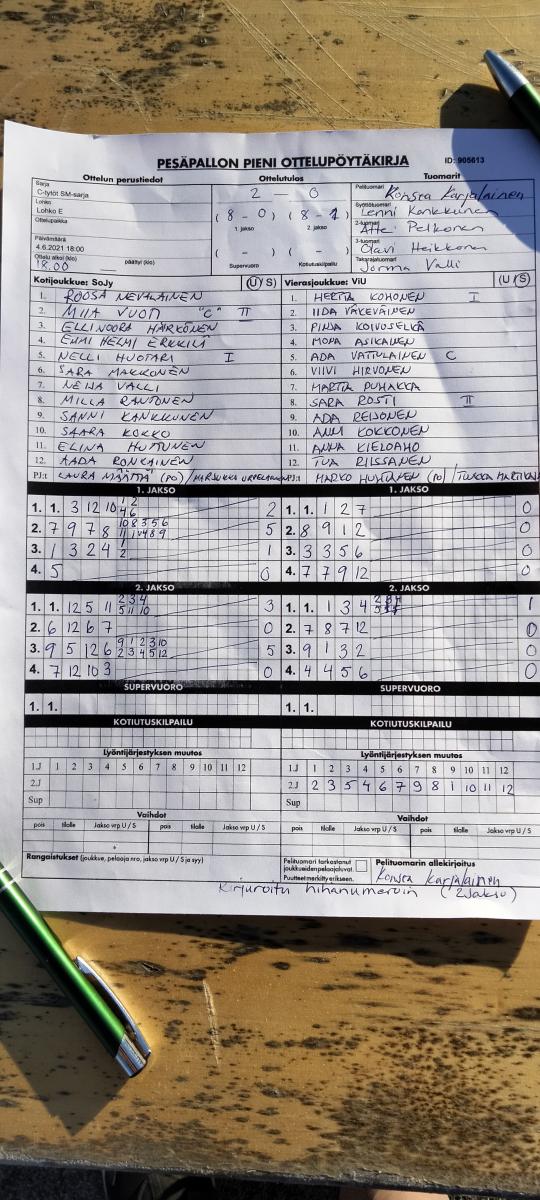 PESÄPALLON PIENI OTTELUPÖYTÄKIRJA ID: 905613
Ottelun perustiedot Ottelutulos Tuomarit
Sarja
C-tytöt SM-sarja
Lohko
Lohko E
Ottelupaikka
Päivämäärä
4.6.2021 18:00
Ottelu alkoi (klo) päättyi (klo)
18.00
2 - 0
(8 - 0) (8 - 1)
1. jakso 2. jakso
( - ) ( - )
Supervuoro Kotiutuskilpailu
Pelituomari Konsta Karjalainen
Syöttötuomari Lenni Konkkunen
2-tuomari Atte Pelkonen
3-tuomari Olavi Heikkonen
Takarajatuomari Jorma Valli
Kotijoukkue: SoJy (U/S) Vierasjoukkue: ViU (U/S)
1. ROOSA NEVALAINEN 1. HERTTA KOHONEN I
2. MIIA VUOTI "C" II 2. IIDA VÄKEVÄINEN
3. ELLINOORA HÄRKÖNEN 3. PINJA KOIVUSELKÄ
4. EMMI HELMI ERKKILÄ 4. MONA ASIKAINEN
5. NELLI HUOTARI I 5. ADA VATTULAINEN C
6. SARA MAKKONEN 6. VIIVI HIRVONEN
7. NEIJA VALLI 7. MARTTA PUHAKKA
8. MILLA RANTONEN 8. SARA ROSTI II
9. SANNI KANKKUNEN 9. ADA REIJONEN
10. SAARA KOKKO 10. ANNI KOKKONEN
11. ELINA HUTTUNEN 11. ANNA KIELOAHO
12. AADA RONKAINEN 12. TUA RIISSANEN
PJ:t LAURA MÄÄTTÄ (PO) / PJ:t MARKO HUHTANEN (PO) /
1. JAKSO 1. JAKSO
1. 1. 3 12 10 1 2 4 6 2 1. 1. 1 2 7 0
2. 7 9 7 8 10 8 3 5 6 5 2. 8 9 1 2 0
3. 1 3 2 4 1 2 1 3. 3 3 5 6 0
4. 5 0 4. 7 7 9 12 0
2. JAKSO 2. JAKSO
1. 1. 12 5 11 2 3 4 5 11 10 3 1. 1. 1 3 4 1
2. 6 12 6 7 0 2. 7 8 7 12 0
3. 9 5 12 6 9 1 2 3 10 2 3 4 5 12 5 3. 9 1 3 2 0
4. 7 12 10 3 0 4. 4 4 5 6 0
SUPERVUORO SUPERVUORO
1. 1. 1. 1.
KOTIUTUSKILPAILU KOTIUTUSKILPAILU
Lyöntijärjestyksen muutos Lyöntijärjestyksen muutos
1.J 1 2 3 4 5 6 7 8 9 10 11 12 1.J 1 2 3 4 5 6 7 8 9 10 11 12
2.J 2.J 2 3 5 4 6 7 9 8 1 10 11 12
Sup Sup
Vaihdot Vaihdot
pois tilalle Jakso vrp U / S pois tilalle Jakso vrp U / S pois tilalle Jakso vrp U / S pois tilalle Jakso vrp U / S
Rangaistukset (joukkue, pelaaja nro, jakso vrp U / S ja syy)
Pelituomari tarkastanut
joukkueiden pelaajaluvat.
Puutteet merkitty erikseen.
Pelituomarin allekirjoitus
Konsta Karjalainen
Kirjuroitu hihanumeroin (2 jakso)